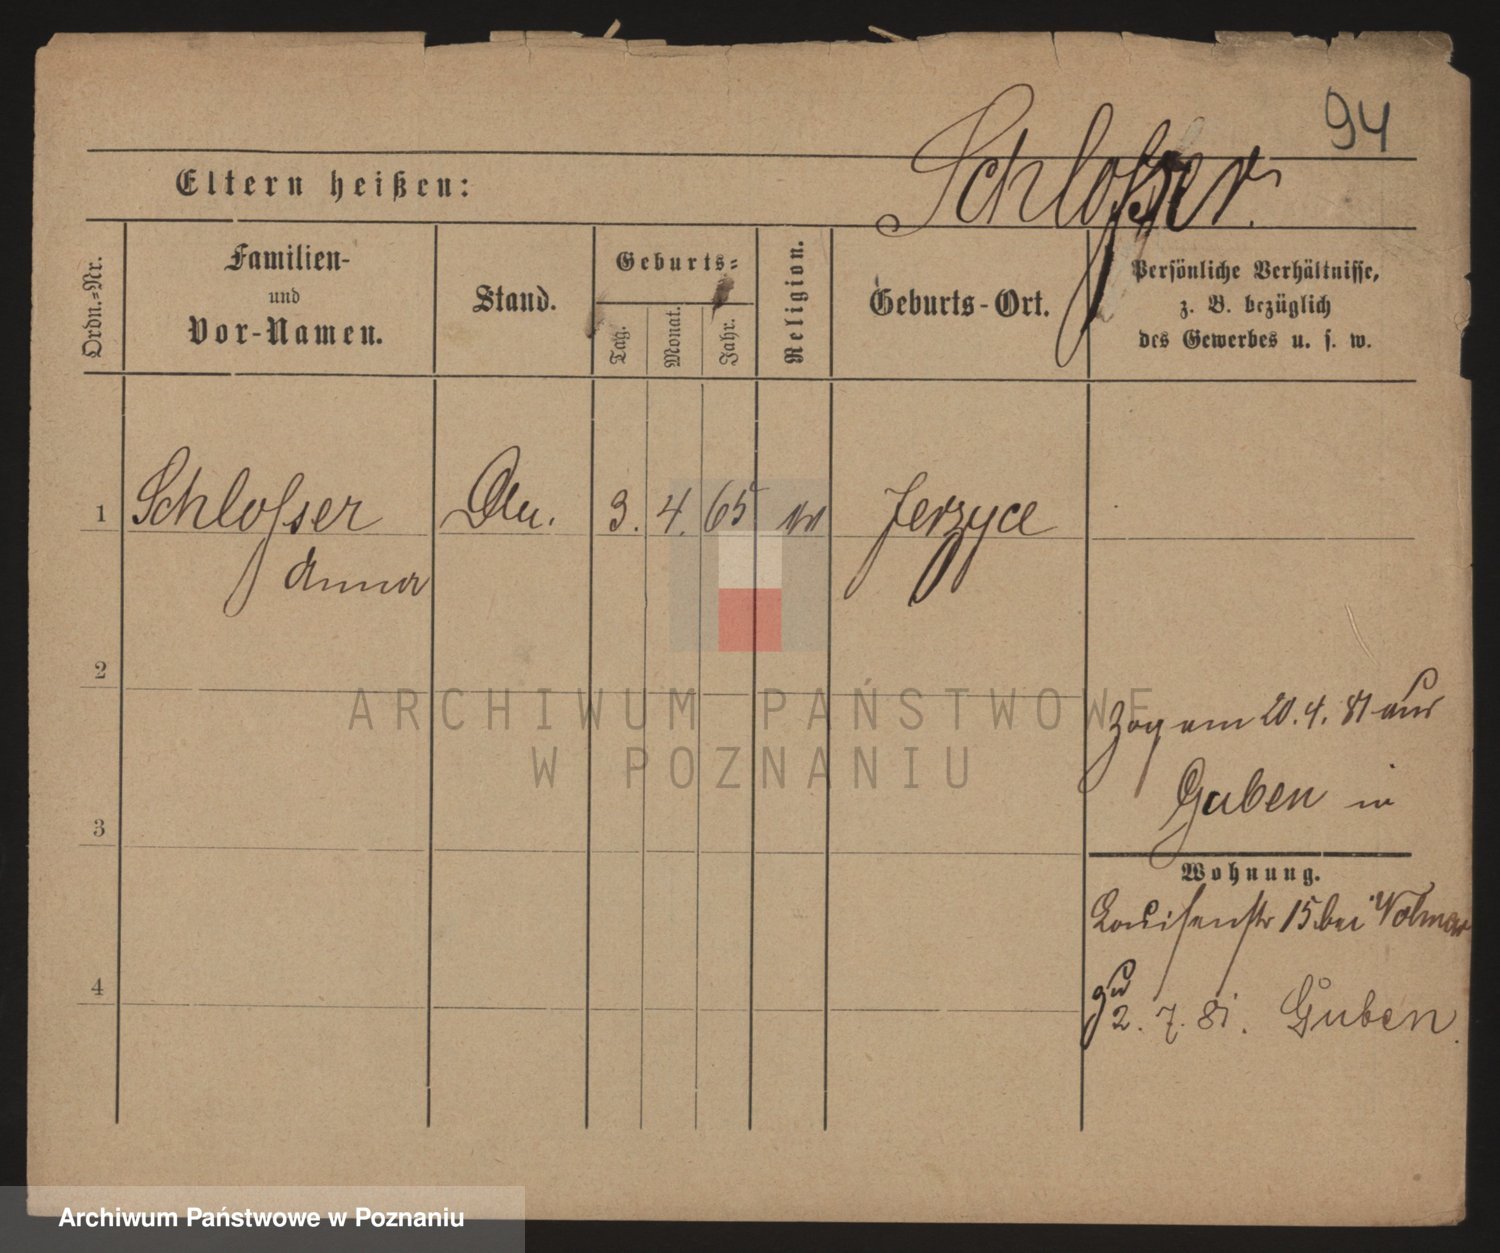 94
Schlosser.
Eltern heißen:
Ordn.-Nr.
Familien-
und
Vor-Namen.
Stand.
Geburts-
Tag.
Monat.
Jahr.
Religion.
Geburts-Ort.
Persönliche Verhältnisse,
z. B. bezüglich
des Gewerbes u. s. w.
1 Schlosser 3. 4. 65 Jerzyce
Anna
2
ARCHIWUM PAŃSTWOWE
W POZNANIU
Zog am 20. 4. 81 aus
Guben in
3
Wohnung.
Louisenstr 15 bei Volmar
4
2. 7. 81. Guben.
Archiwum Państwowe w Poznaniu